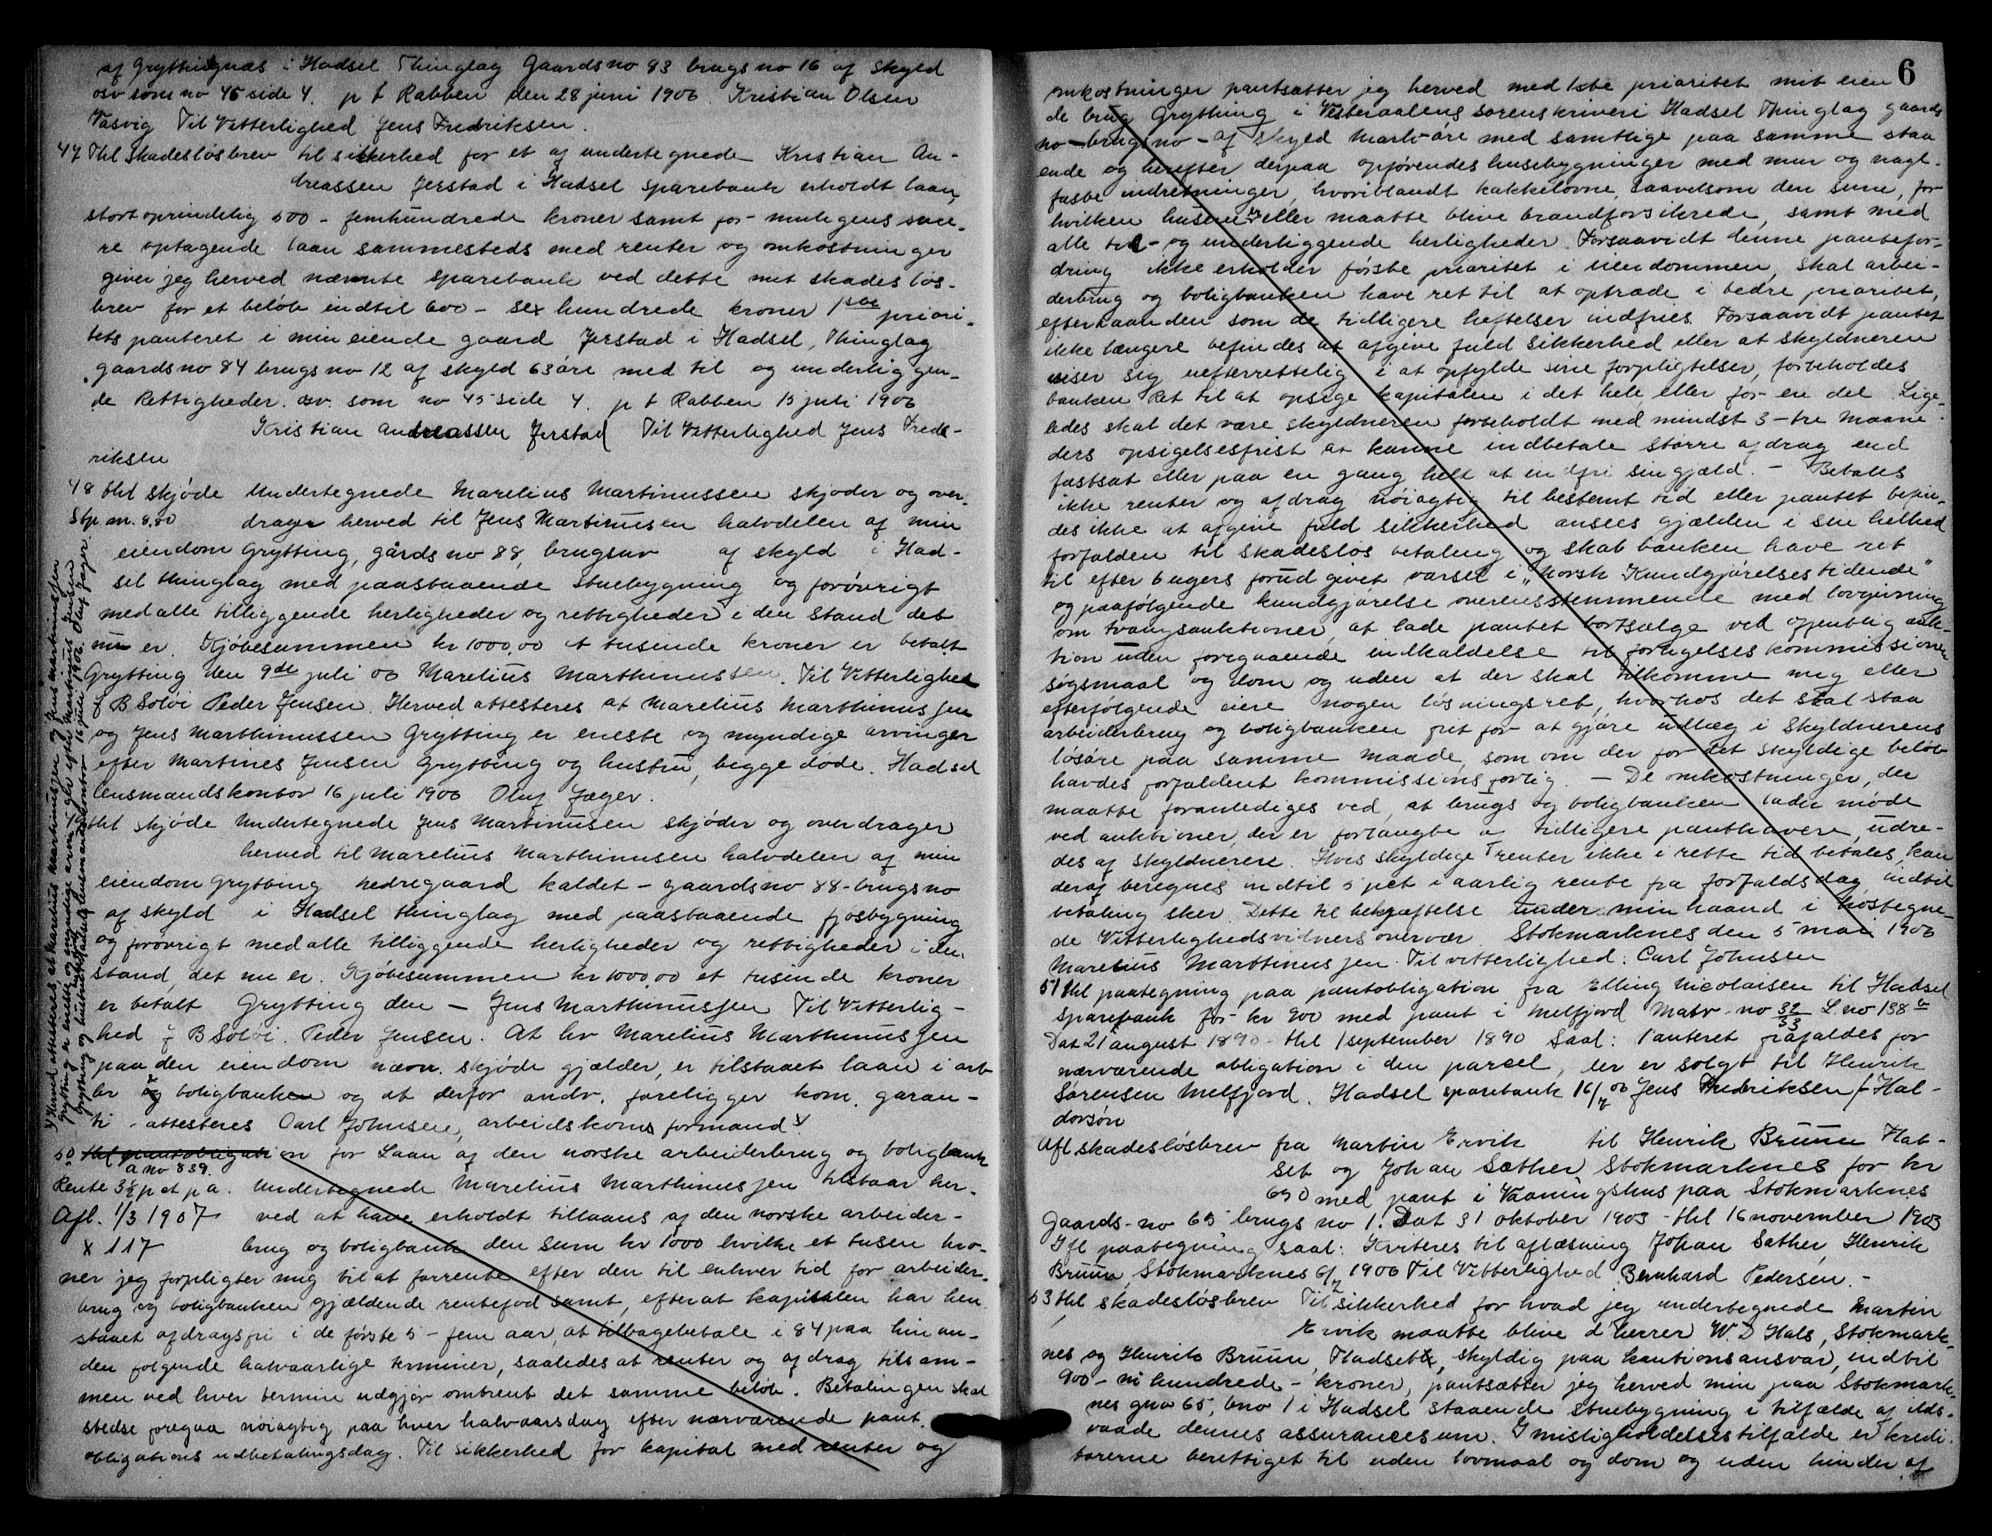 af Gryttingnæs i Hadsel Thinglag Gaardsno 93 brugsno 16 af skyld
osv som no 45 side 4. p t Rabben den 28 juni 1906. Kristian Olsen
Vasvig Til Vitterlighed Jens Fredriksen.
47 Thl skadesløsbrev til sikkerhed for et af undertegnede Kristian An-
dreassen Jerstad i Hadsel sparebank erholdt laan
stort oprindelig 500 - femhundrede kroner samt for muligens sene-
re optagende laan sammesteds med renter og omkostninger
giver jeg herved nævnte sparebank ved dette mit skadesløs-
brev for et beløb indtil 600 - sex hundrede kroner 1ste priori-
tets panteret i min eiende gaard Jerstad i Hadsel, Thinglag
gaardsno 84 brugsno 12 af skyld 63 øre med til og underliggen-
de Rettigheder. osv. som no 45 side 4. p t Rabben 13 juli 1906
Kristian Andreassen Jerstad Til Vitterlighed Jens Fred-
riksen
48 thl skjøde Undertegnede Marelius Martinussen skjøder og over-
Stp m. 8,80 drager herved til Jens Martinusen halvdelen af min
eiendom Grytting, gårdsno 88, brugsnr af skyld i Had-
sel thinglag med paastaaende stuebygning og forøvrigt
med alle tilliggende herligheder og rettigheder i den stand det
nu er. Kjøbesummen kr 1000,00 et tusende kroner er betalt
Grytting den 9de juli 06 Marelius Marthinussen. Til Vitterlighed
J B Soløi Peder Jensen. Herved attesteres at Marelius Marthinussen
og Jens Marthinussen Grytting er eneste og myndige arvinger
efter Martines Jensen Grytting og hustru, begge døde. Hadsel
lensmandskontor 16 juli 1906 Oluf Jæger.
thl skjøde Undertegnede Jens Martinusen skjøder og overdrager
herved til Marelius Marthinusen halvdelen af min
eiendom Grytting nedregaard kaldet - gaardsno 88 - brugsno
af skyld i Hadsel thinglag med paastaaende fjøsbygning
og forøvrigt med alle tilliggende herligheder og rettigheder i den
stand det nu er. Kjøbesummen kr 1000,00 et tusinde kroner
er betalt Grytting den - Jens Marthinussen Til Vitterlig-
hed J B Soløi. Peder Jensen. At hr Marelius Marthinussen
paa den eiendom nævn. skjøde gjælder, er tilstaaet laan i arb
br og boligbanken og at derfor andr. foreligger kom. garan-
ti - attesteres Carl Johnsen, arbeidskoms formand x
x) Herved attesteres at Marelius Martinussen og Jens Martinussen
Grytting er eneste og myndige arvinger efter Martinus Jensen
Grytting og hustru, Hadsel lensmandskontor 16 juli 1906. Oluf Jæger.
50 thl pantobligation for Laan af den norske arbeiderbrug og boligbank
a no 839.
Rente 3½ pct p a. Undertegnede Marelius Marthinussen tilstaar her-
Afl. 1/3 1907 ved at have erholdt tillaans af den norske arbeider-
x 117 brug og boligbank den sum kr 1000 hvilke et tusen kro-
ner jeg forpligter mig til at forrente efter den til enhver tid for arbeider-
brug og boligbanken gjældende rentefod samt, efterat kapitalen har hen
staaet afdragsfri i de første 5 - fem aar, at tilbagebetale i 84 paa hinan-
den følgende halvaarlige terminer, saaledes at renter og afdrag tilsam-
men ved hver termin udgjør omtrent det samme beløb. Betalingen skal
stedse foregaa nøiagtig paa hver halvaarsdag efter nærværende pant-
obligations udbetalingsdag. Til sikkerhed for kapital med renter og
6
omkostninger pantsætter jeg herved med 1ste prioritet mit eien
de brug Grytting i Vesteraalens sorenskriveri Hadsel Thinglag gaards
no - brugsno - af skyld mark øre med samtlige paa samme staa
ende og herefter derpaa opførendes husebygninger med mur og nagl-
faste indretninger, hvoriblandt kakkelovne, saavelsom den sum, for
hvilken husene er eller maatte blive brandforsikrede, samt med
alle til- og underliggende herligheder. Forsaavidt denne pantefor-
dring ikke erholder første prioritet i eiendommen, skal arbei-
derbrug og boligbanken have ret til at optræde i bedre prioritet,
efterhaanden som de tidligere heftelser indfries. Forsaavidt pantet
ikke længere befindes at afgive fuld sikkerhed eller at skyldneren
viser sig uefterrettelig i at opfylde sine forpligtelser, forbeholdes
banken Ret til at opsige kapitalen i det hele eller for en del. Lige-
ledes skal det være skyldneren forbeholdt med mindst 3 - tre maane
ders opsigelsesfrist at kunne indbetale større afdrag end
fastsat eller paa en gang helt at indfri sin gjæld. - Betales
ikke renter og afdrag nøiagtig til bestemt tid eller pantet befin-
des ikke at afgive fuld sikkerhed ansees gjælden i sin helhed
forfalden til skadesløs betaling og skal banken have ret
til efter 6 ugers forud givet varsel i "Norsk Kundgjørelsestidende"
og paafølgende kundgjørelse overensstemmende med lovgivning
om tvangsauktioner, at lade pantet bortsælge ved offentlig auk-
tion uden foregaaende indkaldelse til forligelseskommissionen
søgsmaal og dom og uden at der skal tilkomme mig eller
efterfølgende eiere nogen løsningsret, hvorhos det skal staa
arbeiderbrug og boligbanken frit for at gjøre udlæg i skyldnerens
løsøre paa samme maade, som om der for det skyldige beløb
havdes forfaldent kommissionsforlig. - De omkostninger, der
maatte foranlediges ved, at brugs og boligbanken lader møde
ved auktioner, der er forlangte af tidligere panthavere, udre-
des af skyldneren. Hvis skyldige renter ikke i rette tid betales, kan
deraf beregnes indtil 5 pct i aarlig rente fra forfaldsdag indtil
betaling sker. Dette til bekræftelse under min haand i hostegne-
de Vitterlighedsvidners overvær. Stokmarknes den 5 mai 1906
Marelius Marthinussen. Til vitterlighed: Carl Johnsen
51 thl paategning paa pantobligation fra Elling Nicolaisen til Hadsel
sparebank for kr 900 med pant i Melfjord Matr. no 32/33 L no 138 b
Dat 21 august 1890 - thl 1 september 1890 Saal: Panteret frafaldes for
nærværende obligation i den parsel, der er solgt til Henrik
Sørensen Melfjord. Hadsel sparebank 16/7 06 Jens Fredriksen / Hal-
dorsøn
Afl skadesløsbrev fra Martin Ervik til Henrik Bruun Had-
sel og Johan Sæther Stokmarknes for kr
690 med pant i Vaaningshus paa Stokmarknes
Gaards-no 65 brugs no 1. Dat 31 oktober 1903 - thl 16 november 1903
Ifl paategning saal: Kviteres til aflæsning Johan Sæther, Henrik
Bruun Stokmarknes 6/7 1906 Til Vitterlighed Bernhard Pedersen. -
53 thl skadesløsbrev Til sikkerhed for hvad jeg undertegnede Martin
Ervik maatte blive d herrer W. D Hals, Stokmark-
nes og Henrik Bruun, Hadsel, skyldig paa kautionsansvar, indtil
900 - ni hundrede - kroner, pantsætter jeg herved min paa Stokmark-
nes gno 65, bno 1 i Hadsel staaende stuebygning i tilfælde af ilds-
vaade dennes assurancesum. I misligholdelsestilfælde er kredi-
torerne berettiget til uden lovmaal og dom og uden hinder af